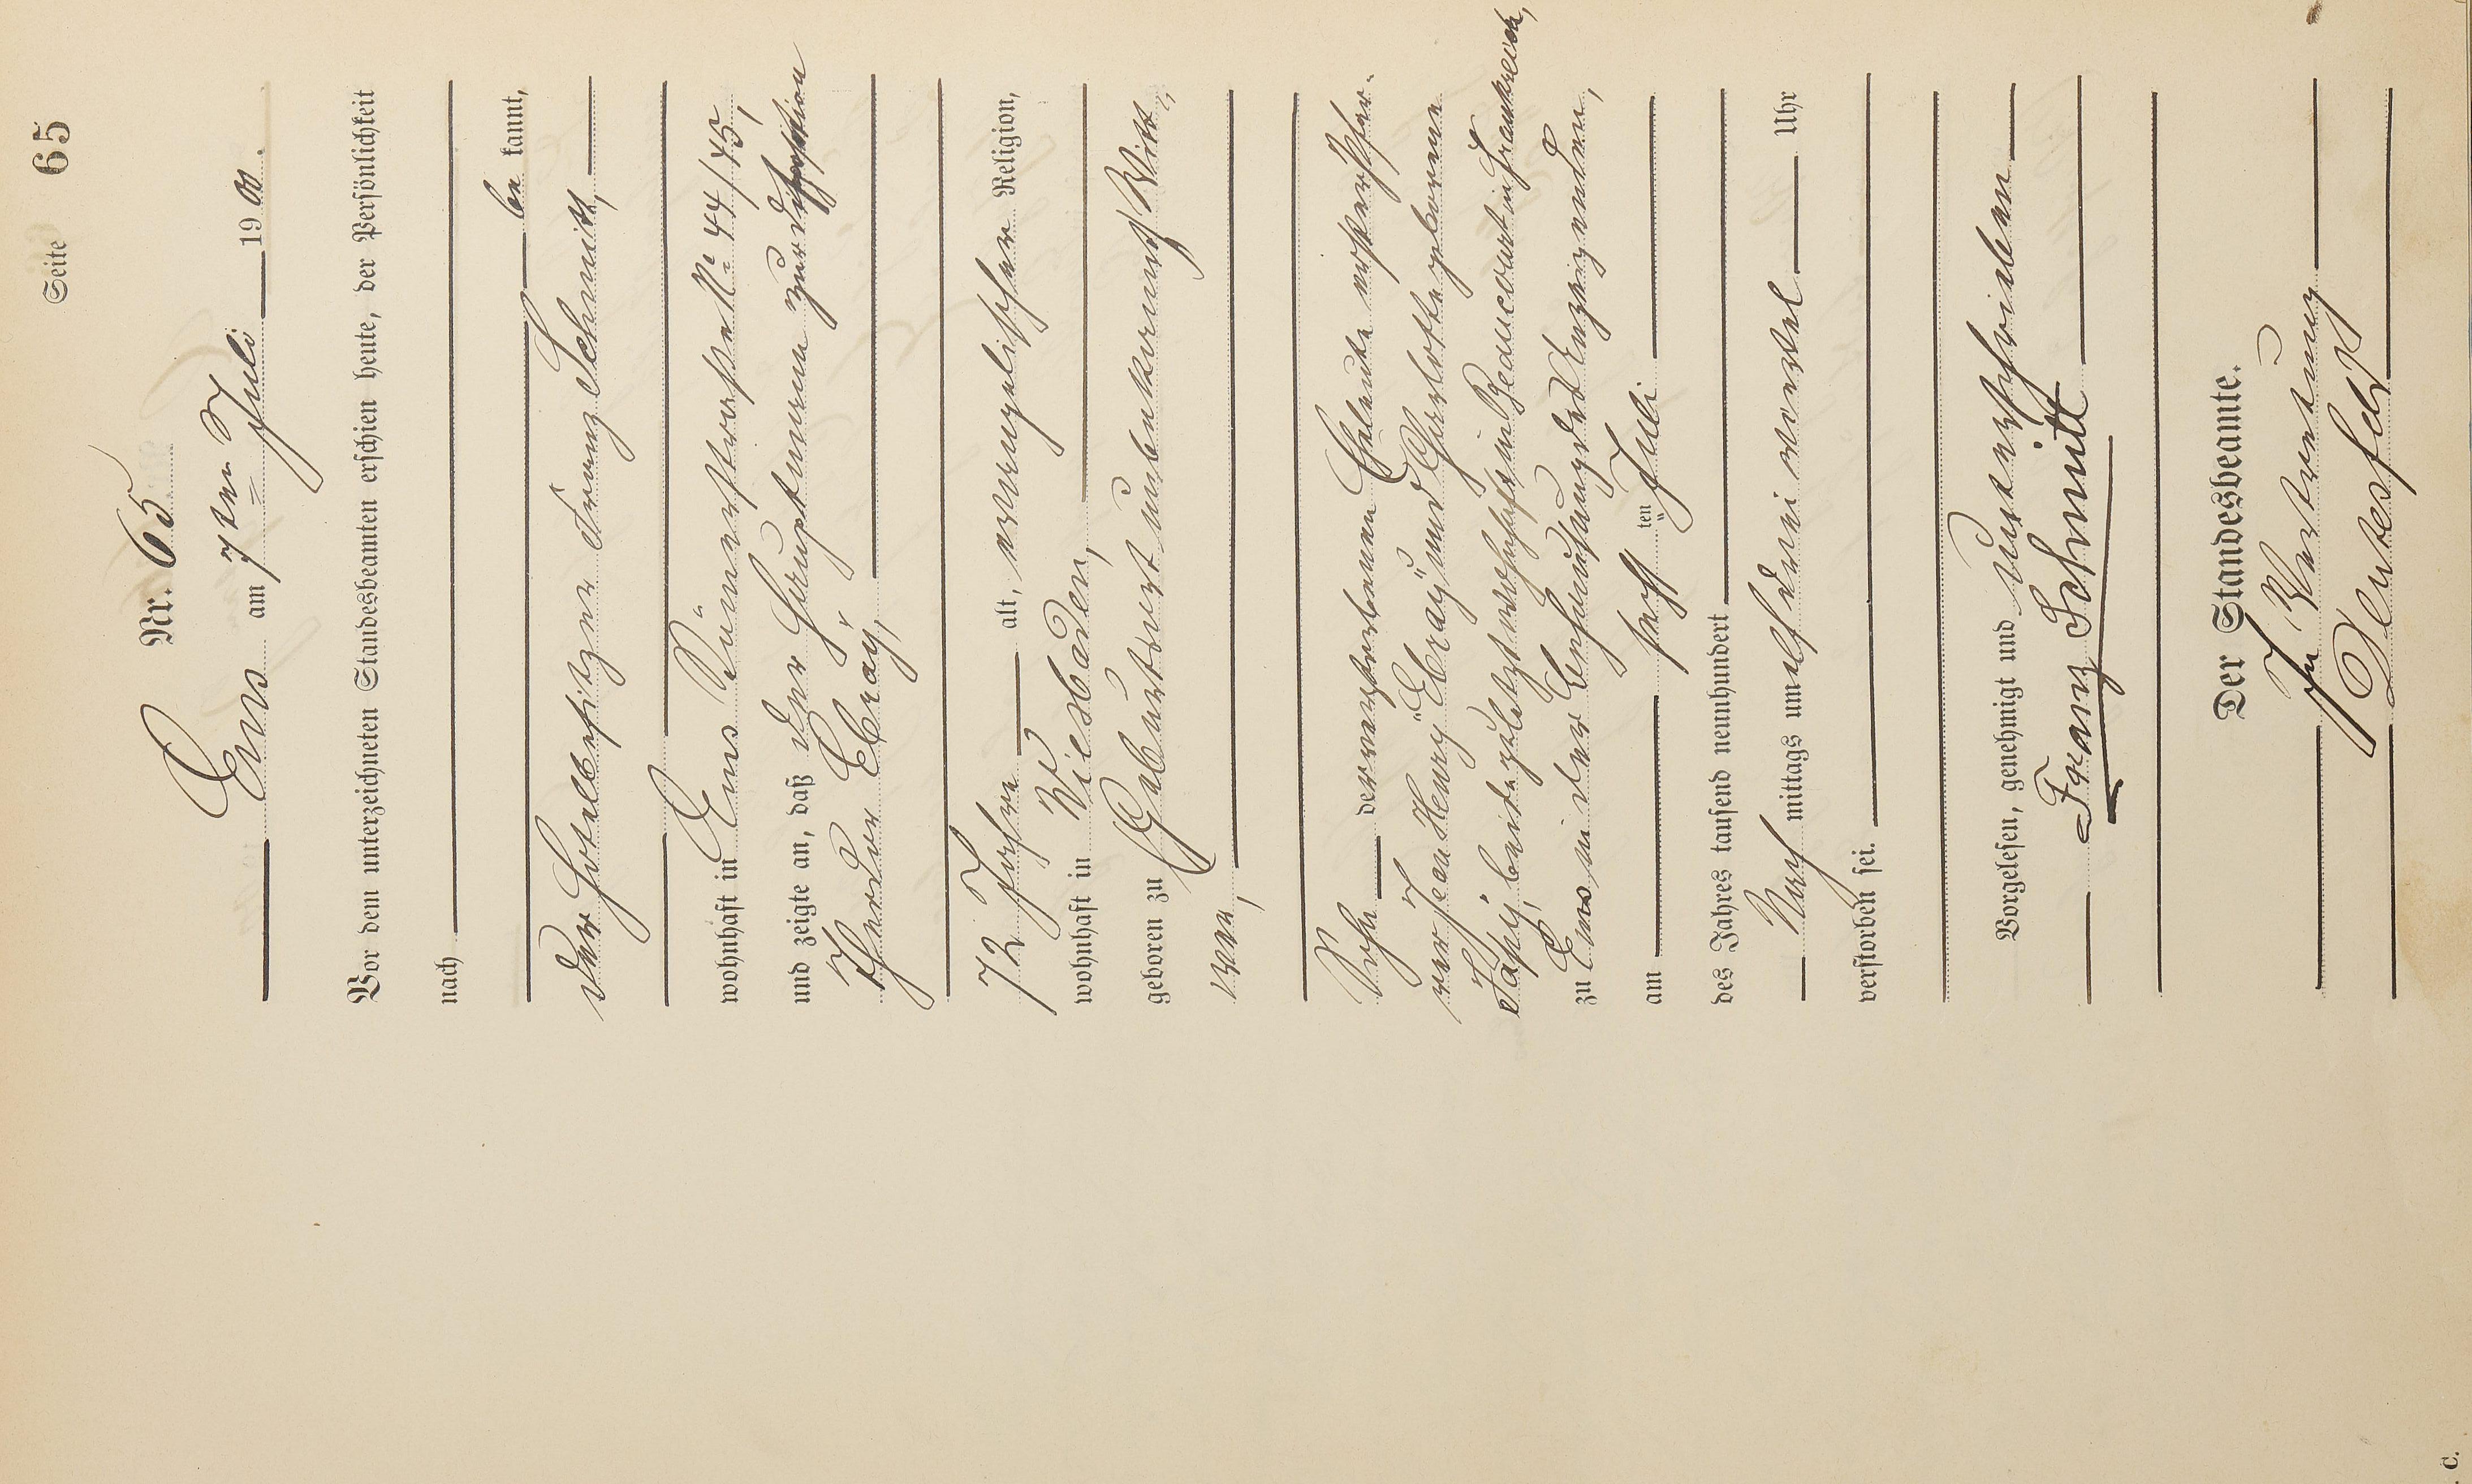 Seite 65
Nr. 65
Ems am 7ten Juli 1900.
Vor dem unterzeichneten Standesbeamten erschien heute, der Persönlichkeit
nach
be kannt,
der Hotelbesitzer Franz Schmitt,
wohnhaft in Ems Römerstraße No 44/45,
und zeigte an, daß der Hauptmann zur Disposition
Theodor Ebray,
72 Jahre alt, evangelischer Religion,
wohnhaft in Wiesbaden,
geboren zu Geburtsort unbekannt, Witt-
wer,
Sohn der verstorbenen Eheleute
Jean Henry "Ebray" und Charlotte geborene
beide zuletzt wohnhaft in Beaucourt in Frankreich,
zu Ems, in der Behausung des Anzeigenden,
am sechsten Juli
des Jahres tausend neunhundert
Nach mittags um elf drei viertel Uhr
verstorben sei.
Vorgelesen, genehmigt und unterschrieben
Franz Schmitt
Der Standesbeamte.
In Vertretung
C.